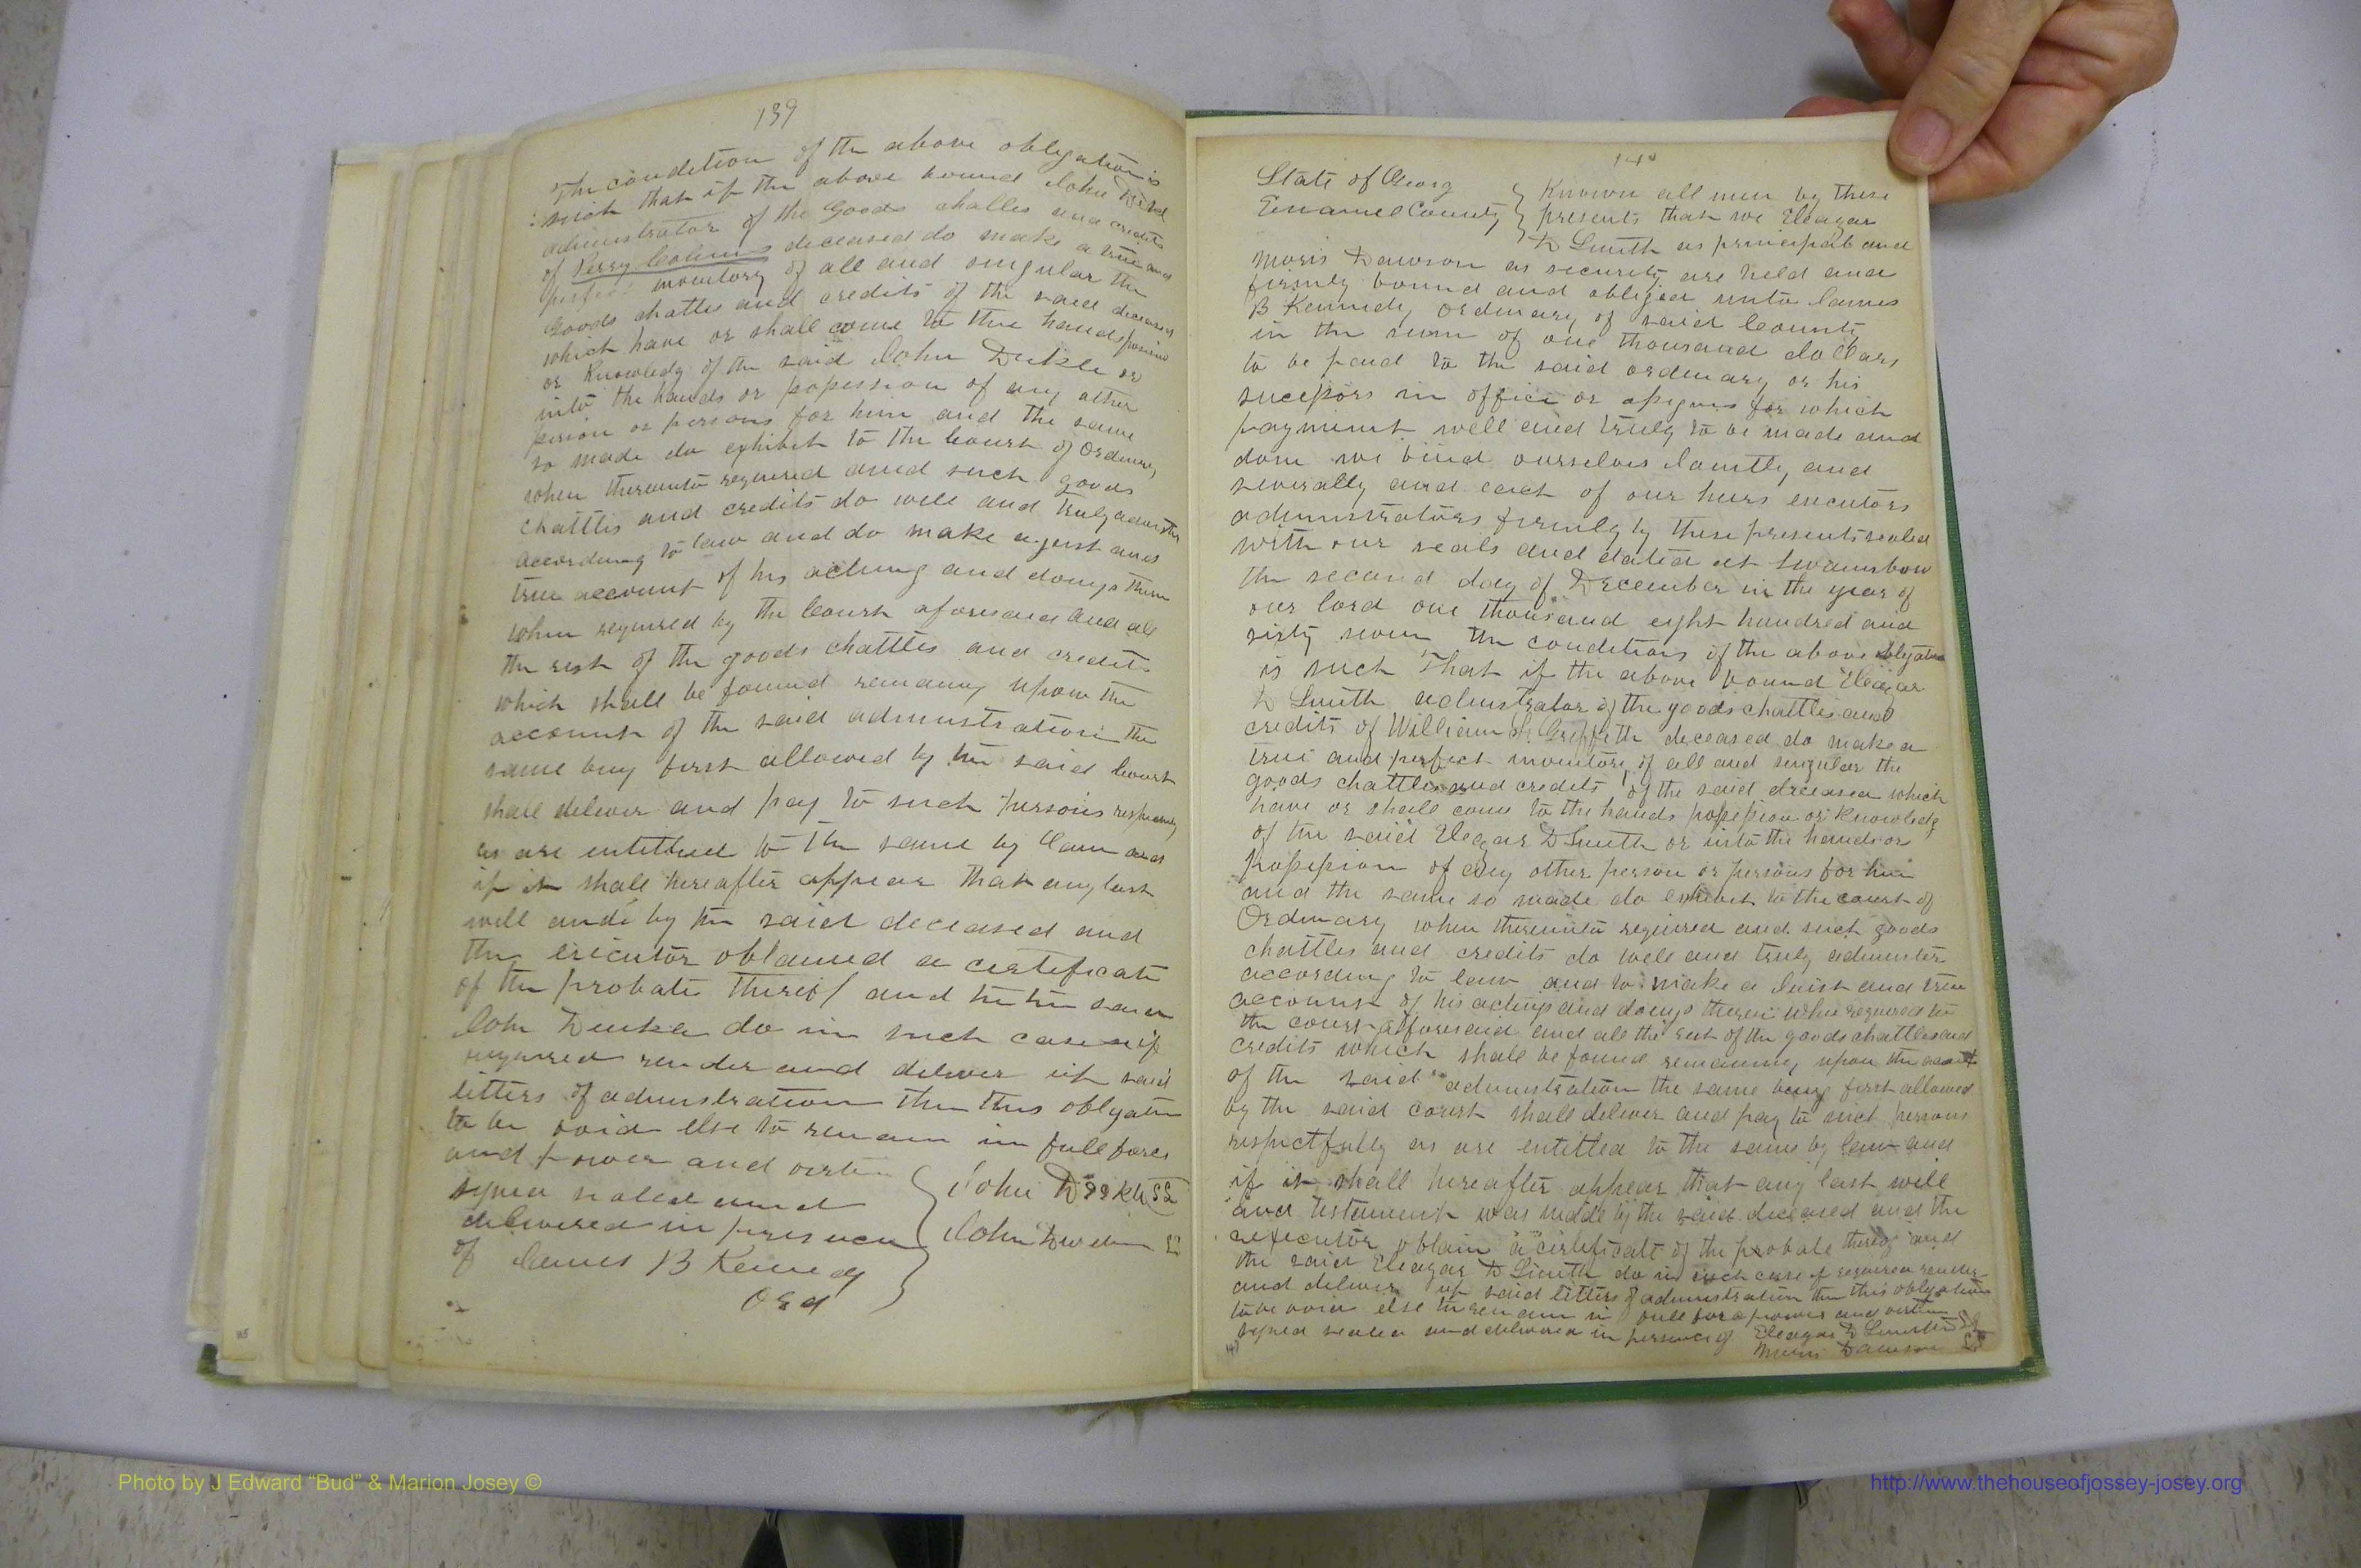 139
The condition of the above obligation is
such that if the above bound John
administrator of the Goods chattles and credits
of Perry Collins deceased do make a true and
perfect inventory of all and singular the
goods chattles and credits of the said deceased
which have or shall come to the hands
or Knowledg of the said John Duke or
into the hands or possession of any other
person or persons for him and the same
so made do exhibit to the Court of Ordinary
when thereunto required and such goods
chattles and credits do well and truly
according to law and do make a just and
true account of his acting and doings
when required by the Court aforesaid and all
the rest of the goods chattles and credits
which shall be found remaing upon the
account of the said administration the
same beng first allowed by the said Court
shall deliver and pay to such persons
as are entitled to the same by law and
if it shall hereafter appear that any last
will by the said deceased and
the executor obtained a certificate
of the probate thereof and
John do in such case if
required render and deliver up said
letters of administration then this obligation
to be void else to remain in full force
and power and
signed sealed and
delivered in
of James B Kennedy
Ord
John
John
140
State of Georg
County
Known all men by these
presents that we Eleazar
D Smith as principal and
Moris Dawson as security are held and
firmly bound and obliged unto James
B Kennedy ordinary of said County
in the sum of one thousand dollars
to be paid to the said ordinary or his
successors in office or assigns for which
payment well and truly to be made and
done we bind ourselves Jointly and
severally and each of our heirs executors
administrators firmly by these presents sealed
with our seals and dated at Swainsboro
the second day of December in the year of
our lord one thousand eight hundred and
sixty seven the conditions of the above obligation
is such That if the above bound Eleazar
D Smith administrator of the goods chattles and
credits of William Griffith deceased do make a
true and perfect inventory of all and singular the
goods chattles and credits of the said deceased which
have or shall come to the hands possession or Knowledg
of the said Eleazar D Smith or into the hands or
Possession of any other person or persons for him
and the same so made do exhibit to the court of
Ordinary when thereunto required and such goods
chattles and credits do well and truly
according to law and to make a Just and true
account of his actings and doings when required
the court and all the rest of the goods chattles and
credits which shall be found remaining upon the
of the said administration the same being first allowed
by the said court shall deliver and pay to such persons
respectfully as are entitled to the same by law and
if it shall hereafter appear that any last will
and testament was made by the said deceased and the
executor obtain a certificate of the probate thereof and
the said Eleazar D Smith do in such case if required render
and deliver up said letters of administration then this obligation
to be void else to remain in full force power and
signed sealed and delivered in Eleazar D Smith
Dawson
Photo by J Edward “Bud” & Marion Josey ©
http://www.thehouseofjossey-josey.org